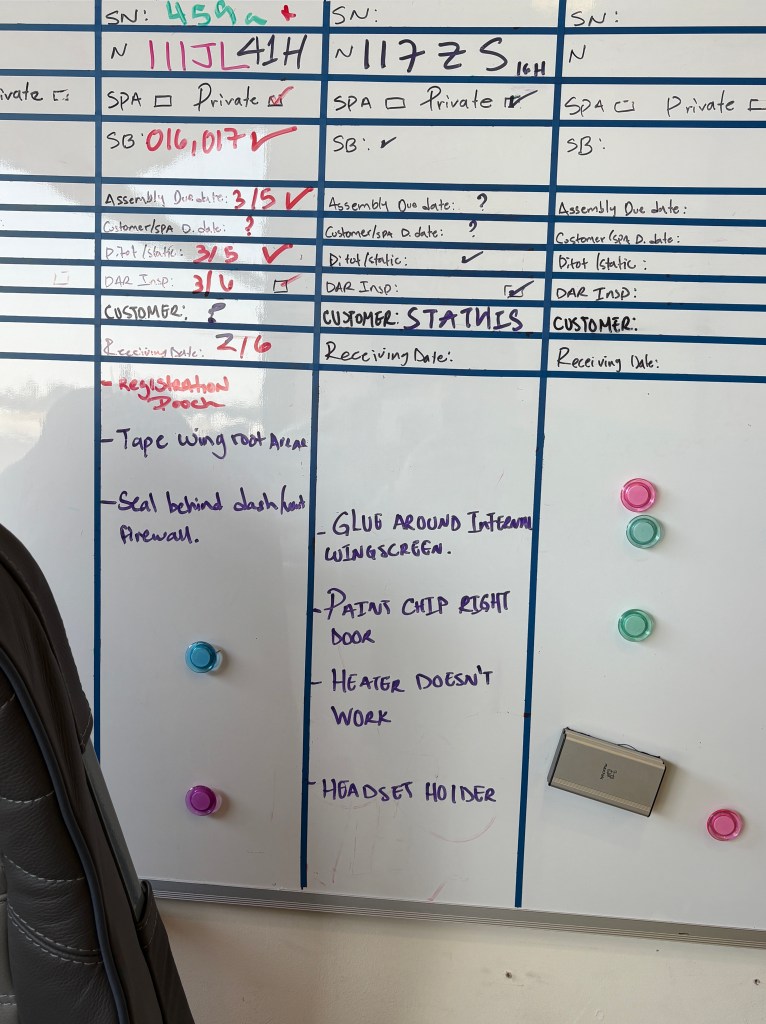 SN: 459a +
N 111JL 41H
SPA Private
SB: 016,017 ✓
Assembly Due date: 3/5 ✓
Customer/SPA D. date: ?
Ditot/static: 3/5 ✓
DAR Insp: 3/6
CUSTOMER: ?
Receiving Date: 2/6
- Registration
- Tape wing root Areas
- Seal behind dash/
firewall.
SN:
N 117ZS 16H
SPA Private
SB: ✓
Assembly Due date: ?
Customer/SPA D. date: ?
Ditot/static: ✓
DAR Insp:
CUSTOMER: STATHIS
Receiving Date:
- GLUE AROUND INTERNAL
WINGSCREEN.
- PAINT CHIP RIGHT
DOOR
- HEATER DOESN'T
WORK
- HEADSET HOLDER
SN:
N
SPA Private
SB:
Assembly Due date:
Customer/SPA D. date:
Ditot/static:
DAR Insp:
CUSTOMER:
Receiving Date: